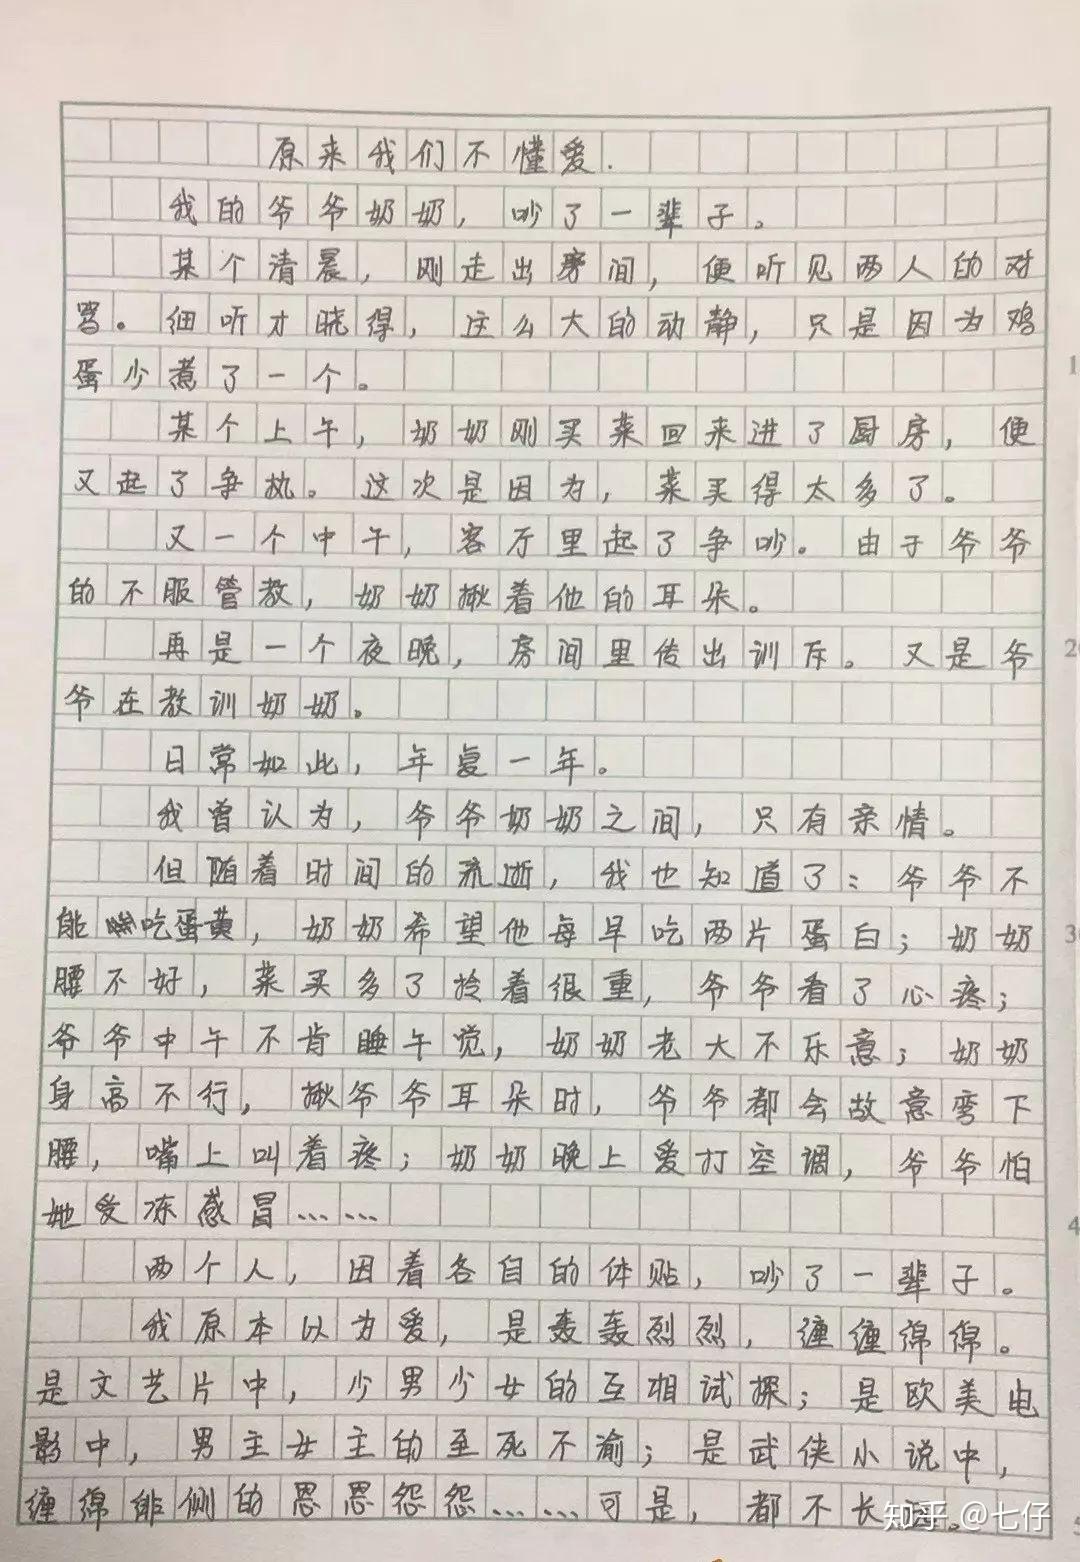 原来我们不懂爱.
我的爷爷奶奶，吵了一辈子。
某个清晨，刚走出房间，便听见两人的对
骂。细听才晓得，这么大的动静，只是因为鸡
蛋少煮了一个。
某个上午，奶奶刚买菜回来进了厨房，便
又起了争执。这次是因为，菜买得太多了。
又一个中午，客厅里起了争吵。由于爷爷
的不服管教，奶奶揪着他的耳朵。
再是一个夜晚，房间里传出训斥。又是爷
爷在教训奶奶。
日常如此，年复一年。
我曾认为，爷爷奶奶之间，只有亲情。
但随着时间的流逝，我也知道了：爷爷不
能吃蛋黄，奶奶希望他每早吃两片蛋白；奶奶
腰不好，菜买多了拎着很重，爷爷看了心疼；
爷爷中午不肯睡午觉，奶奶老大不乐意；奶奶
身高不行，揪爷爷耳朵时，爷爷都会故意弯下
腰，嘴上叫着疼；奶奶晚上爱打空调，爷爷怕
她受冻感冒……
两个人，因着各自的体贴，吵了一辈子。
我原本以为爱，是轰轰烈烈，缠缠绵绵。
是文艺片中，少男少女的互相试探；是欧美电
影中，男主女主的至死不渝；是武侠小说中，
缠绵俳侧的恩恩怨怨……可是，都不长
知乎 @七仔
1
20
30
4
5